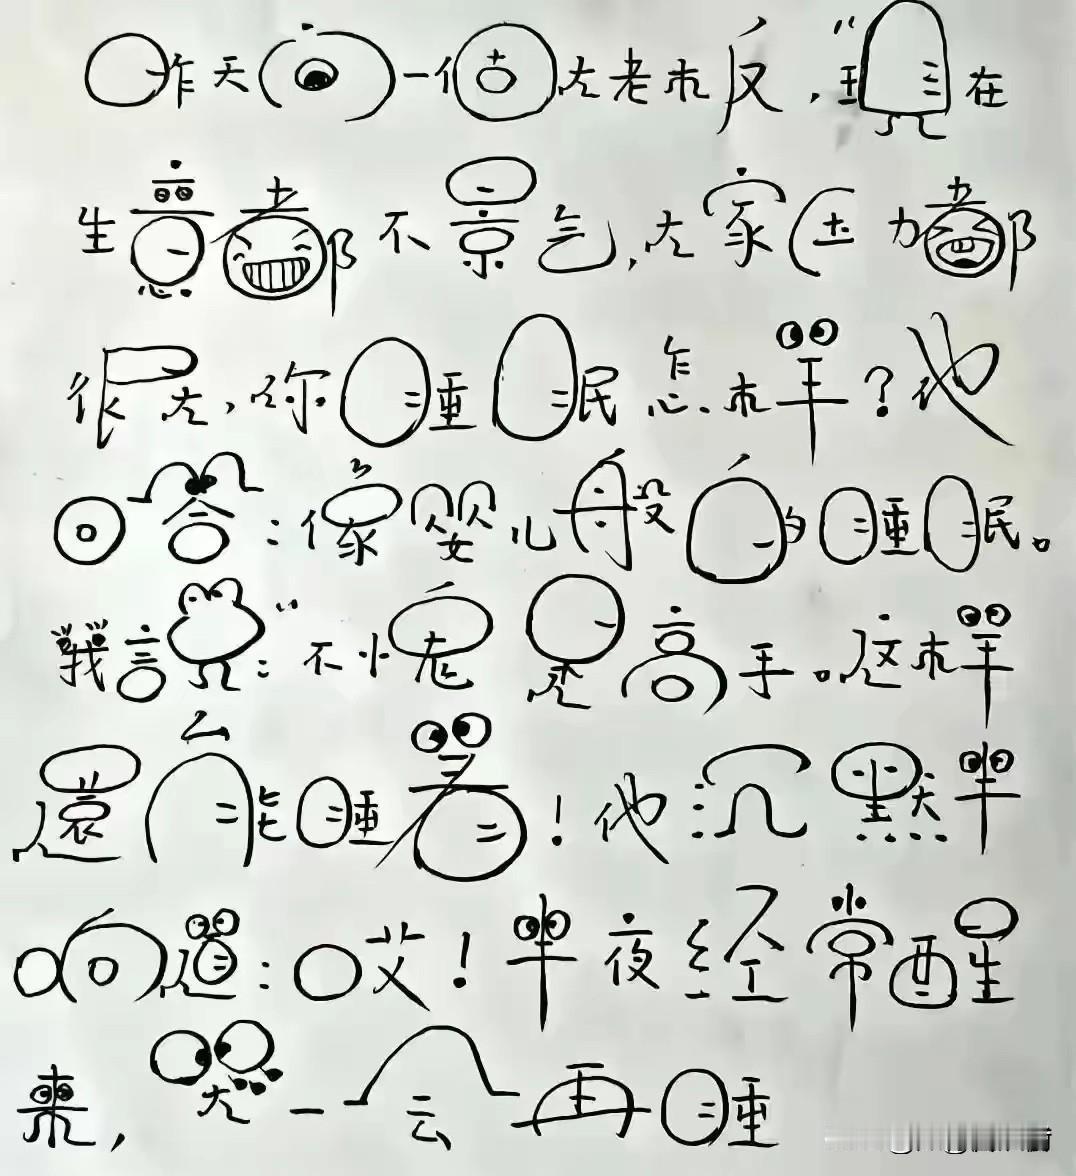 昨天向一個大老板,“現在
生意都不景气,大家压力都
很大,你睡眠怎样?他
回答:像嬰儿般的睡眠。
我說”:不愧是高手。这样
還能睡着!他沉默半
响道:哎!半夜经常醒
來,哭一会再睡